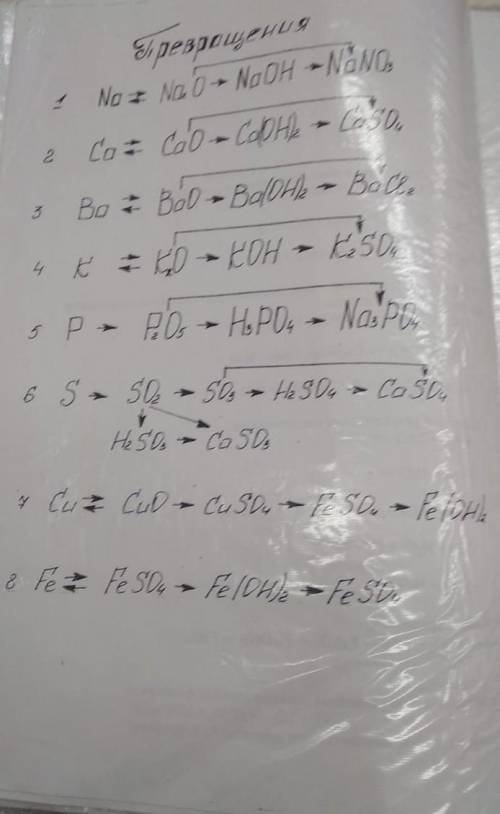 Превращения
1 Na ⇄ Na₂O → NaOH → NaNO₃
2 Ca ⇄ CaO → Ca(OH)₂ → CaSO₄
3 Ba ⇄ BaO → Ba(OH)₂ → BaCl₂
4 K ⇄ K₂O → KOH → K₂SO₄
5 P → P₂O₅ → H₃PO₄ → Na₃PO₄
6 S → SO₂ → SO₃ → H₂SO₄ → CaSO₄
H₂SO₃ → CaSO₃
7 Cu ⇄ CuO → CuSO₄ → FeSO₄ → Fe(OH)₂
8 Fe ⇄ FeSO₄ → Fe(OH)₂ → FeSO₄